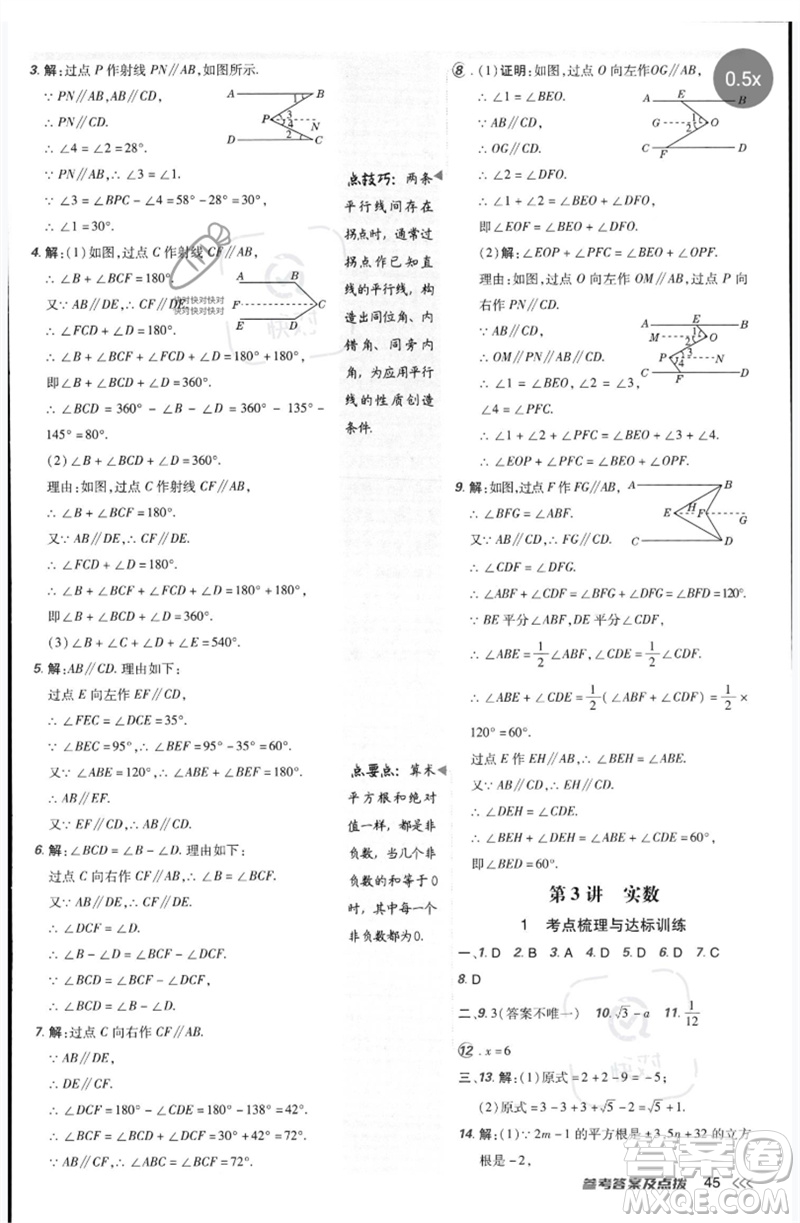 3. 解:过点 P 作射线 PN∥AB,如图所示.
∵ PN∥AB,AB∥CD,
∴ PN∥CD.
∴ ∠4=∠2=28°.
∵ PN∥AB,∴ ∠3=∠1.
又∵ ∠3=∠BPC-∠4=58°-28°=30°,
∴ ∠1=30°.
A B
P 3 4 N
D C
4. 解:(1)如图,过点 C 作射线 CF∥AB,
∴ ∠B+∠BCF=180°.
又∵ AB∥DE,∴ CF∥DE.
∴ ∠FCD+∠D=180°.
∴ ∠B+∠BCF+∠FCD+∠D=180°+180°,
即∠B+∠BCD+∠D=360°.
∴ ∠BCD=360°-∠B-∠D=360°-135°-
145°=80°.
A B
F C
E D
快对快对快对
快对快对快对
(2)∠B+∠BCD+∠D=360°.
理由:如图,过点 C 作射线 CF∥AB,
∴ ∠B+∠BCF=180°.
又∵ AB∥DE,∴ CF∥DE.
∴ ∠FCD+∠D=180°.
∴ ∠B+∠BCF+∠FCD+∠D=180°+180°,
即∠B+∠BCD+∠D=360°.
(3)∠B+∠C+∠D+∠E=540°.
5. 解:AB∥CD. 理由如下:
过点 E 向左作 EF∥CD,
∴ ∠FEC=∠DCE=35°.
又∵ ∠BEC=95°,∴ ∠BEF=95°-35°=60°.
又∵ ∠ABE=120°,∴ ∠ABE+∠BEF=180°.
∴ AB∥EF.
又∵ EF∥CD,∴ AB∥CD.
6. 解:∠BCD=∠B-∠D. 理由如下:
过点 C 向右作 CF∥AB,∴ ∠B=∠BCF.
∵ AB∥DE,CF∥AB,∴ CF∥DE.
∴ ∠DCF=∠D.
∴ ∠B-∠D=∠BCF-∠DCF.
∵ ∠BCD=∠BCF-∠DCF,
∴ ∠BCD=∠B-∠D.
7. 解:过点 C 向右作 CF∥AB.
∵ AB∥DE,
∴ DE∥CF.
∴ ∠DCF=180°-∠CDE=180°-138°=42°.
∴ ∠BCF=∠BCD+∠DCF=30°+42°=72°.
又∵ AB∥CF,
∴ ∠ABC=∠BCF=72°.
点技巧:两条
平行线间存在
拐点时,通常过
拐点作已知直
线的平行线,构
造出同位角、内
错角、同旁内
角,为应用平行
线的性质创造
条件.
点要点:算术
平方根和绝对
值一样,都是非
负数,当几个非
负数的和等于0
时,其中每一个
非负数都为0.
8. (1)证明:如图,过点 O 向左作OG∥AB,
∴ ∠1=∠BEO.
∵ AB∥CD,
∴ OG∥CD.
∴ ∠2=∠DFO.
∴ ∠1+∠2=∠BEO+∠DFO,
即∠EOF=∠BEO+∠DFO.
A E B
G 1 2 O
C F D
(2)解:∠EOP+∠PFC=∠BEO+∠OPF.
理由:如图,过点 O 向左作 OM∥AB,过点 P 向
右作 PN∥CD.
∵ AB∥CD,
∴ OM∥PN∥AB∥CD.
∴ ∠1=∠BEO,∠2=∠3,
∠4=∠PFC.
∴ ∠1+∠2+∠PFC=∠BEO+∠3+∠4.
∴ ∠EOP+∠PFC=∠BEO+∠OPF.
A E B
M 1 2 O
P 3 4 N
C F D
9. 解:如图,过点 F 作 FG∥AB,
∴ ∠BFG=∠ABF.
又∵ AB∥CD,∴ FG∥CD.
∴ ∠CDF=∠DFG.
∴ ∠ABF+∠CDF=∠BFG+∠DFG=∠BFD=120°.
∵ BE 平分∠ABF,DE平分∠CDF,
∴ ∠ABE=1/2∠ABF,∠CDE=1/2∠CDF.
∴ ∠ABE+∠CDE=1/2(∠ABF+∠CDF)=1/2×
120°=60°.
过点 E 作 EH∥AB,∴ ∠BEH=∠ABE.
又∵ AB∥CD,∴ EH∥CD.
∴ ∠DEH=∠CDE.
∴ ∠BEH+∠DEH=∠ABE+∠CDE=60°,
即∠BED=60°.
A B
E H F G
C D
第 3 讲 实数
1 考点梳理与达标训练
一、1. D 2. B 3. A 4. D 5. D 6. D 7. C
8. D
二、9. 3(答案不唯一) 10. √3-a 11. 1/12
12. x=6
三、13. 解:(1)原式=2+2-9=-5;
(2)原式=3-3+3+√5=3+√5.
14. 解:(1)∵ 2m-1的平方根是±3,5n+32的立方
根是-2,
参考答案及点拨 45
0.5x
快对
答案圈